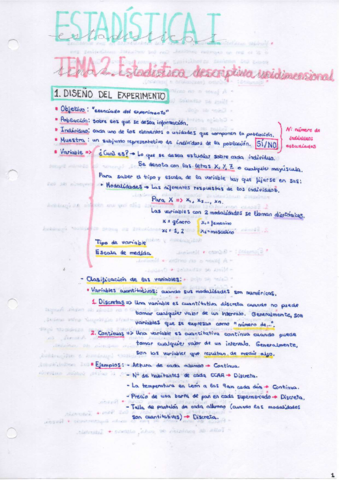 ESTADÍSTICA I
TEMA 2. Estadística descriptiva unidimensional
1. DISEÑO DEL EXPERIMENTO
• Objetivo: "enunciado del experimento"
• Población: sobre los que se desea información.
• Individuo: cada uno de los elementos o unidades que componen la población.
• Muestra: un subgrupo representativo de individuos de la población. SÍ/NO
Nº número de
individuos
estudiados
• Variable → ¿Qué es? → Lo que se desea estudiar sobre cada individuo.
Se denota con las letras X, Y, Z o cualquier mayúscula.
Para saber el tipo y escala de la variable hay que fijarse en sus:
• Modalidades → Las diferentes respuestas de los individuos.
Para X => x₁, x₂..., xₙ.
Las variables con 2 modalidades se llaman dicotómicas.
x = género
x₁ = femenino
xᵢ = 1, 2
x₂ = masculino
Tipo de variable
Escala de medida
- Clasificación de las variables:
• Variables cuantitativas: cuando sus modalidades son numéricas.
1. Discretas => Una variable es cuantitativa discreta cuando no puede
tomar cualquier valor de un intervalo. Generalmente, son
variables que se expresan como "número de..."
2. Continuas => Una variable es cuantitativa continua cuando puede
tomar cualquier valor de un intervalo. Generalmente,
son las variables que resultan de medir algo.
• Ejemplos: - Altura de cada alumno → Continua.
- Nº de habitantes de cada CCAA → Discreta.
- La temperatura en León a las 9am cada día → Continua.
- Precio de una barra de pan en cada supermercado → Discreta.
- Talla de pantalón de cada alumno (cuando las modalidades
son cuantitativas) → Discreta.
1